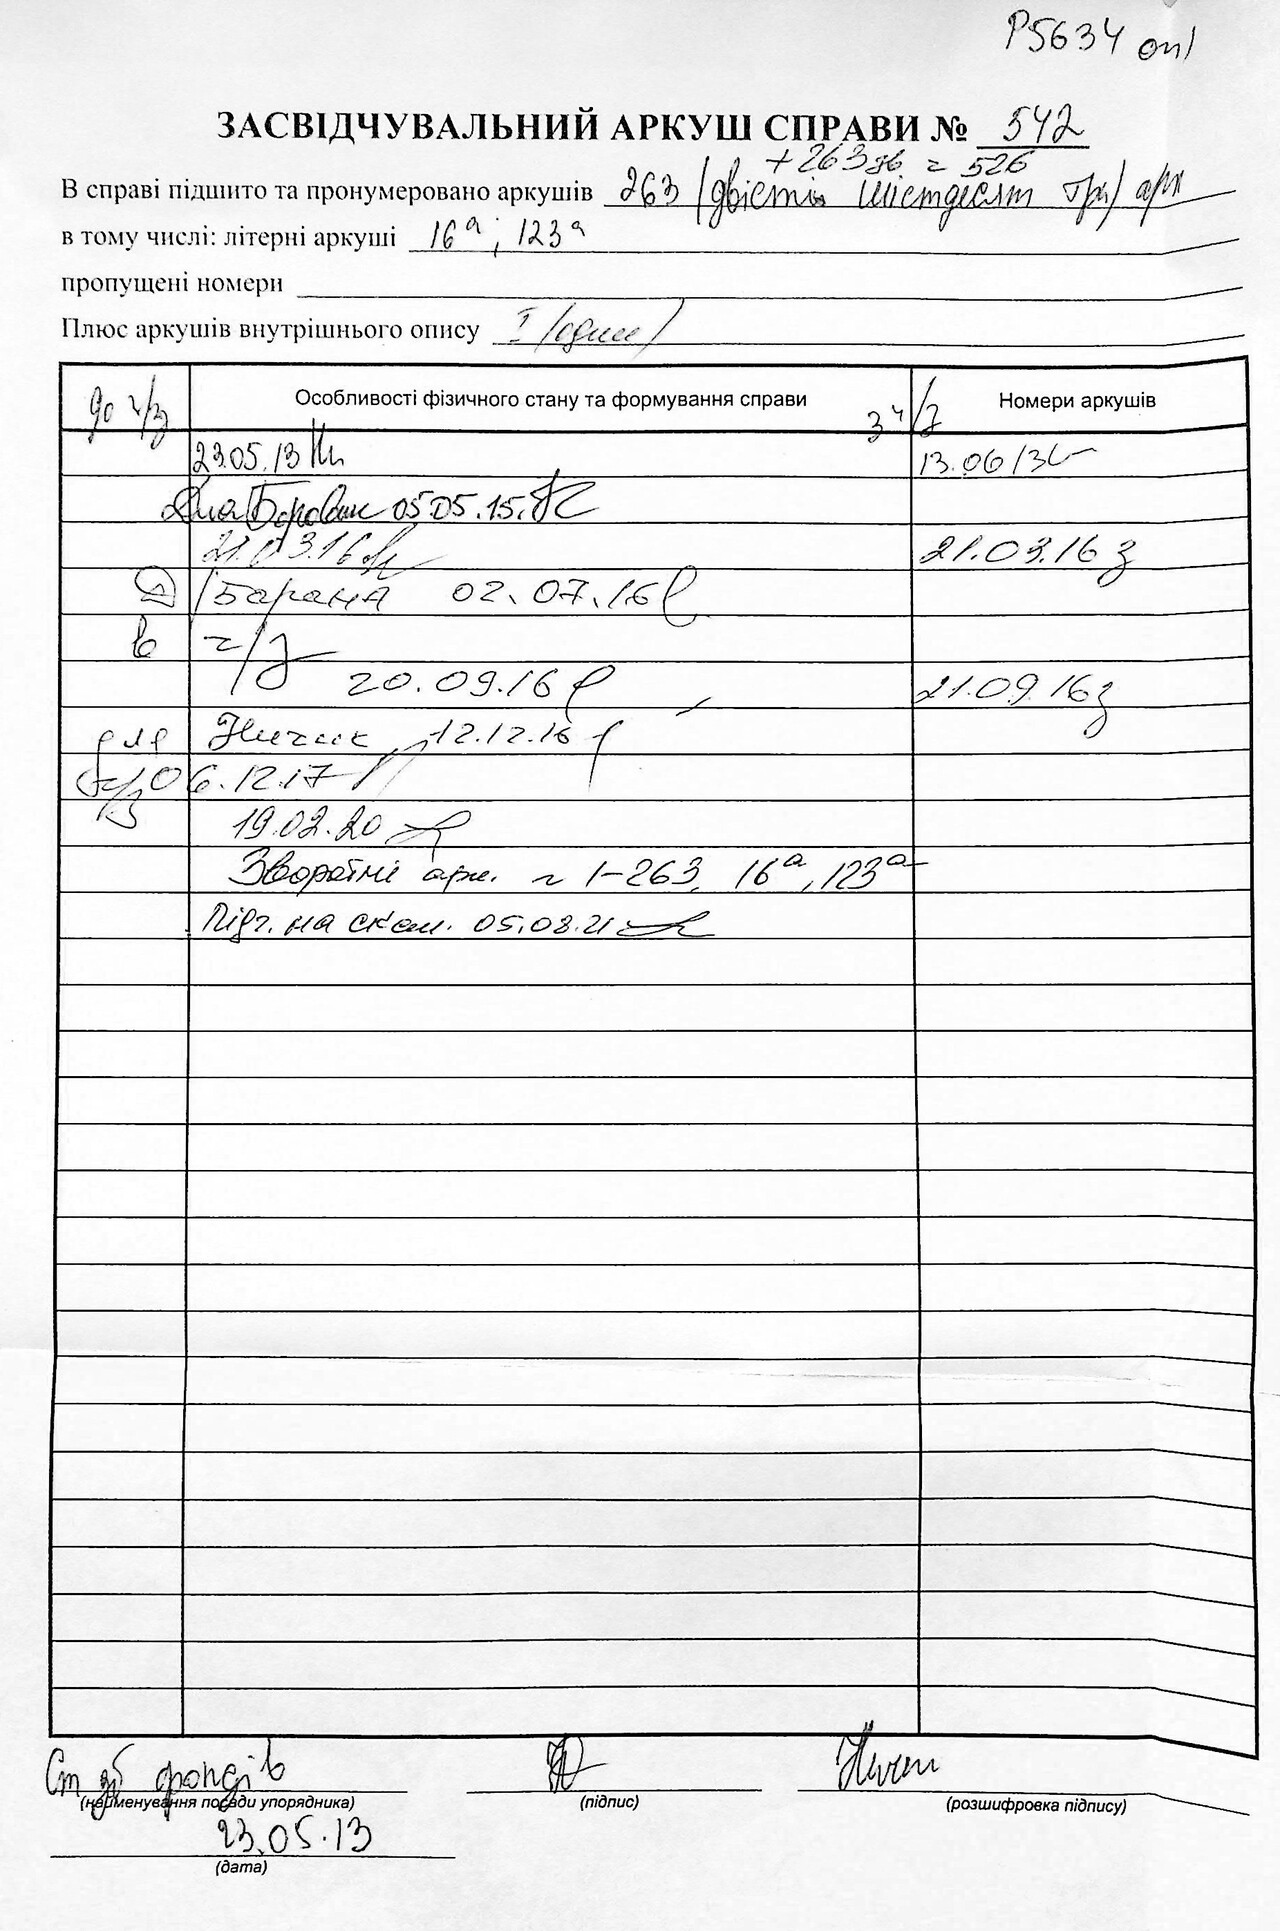 Р5634 оп1
ЗАСВІДЧУВАЛЬНИЙ АРКУШ СПРАВИ № 542
+ 263 зв = 526
В справі підшито та пронумеровано аркушів 263 (двісті шістдесят три) арк
в тому числі: літерні аркуші 16а; 123а
пропущені номери
Плюс аркушів внутрішнього опису 1 (один)
до ч/з Особливості фізичного стану та формування справи з ч/з Номери аркушів
23.05.13 13.06.13
для 05.05.15.
21.03.16 21.03.16 з
Барана 02.07.16
в ч/з
20.09.16 21.09.16 з
для Ничик 12.12.16
ч/з 06.12.17
19.02.20
Зворотні арк. 1-263, 16а, 123а
Підг. на скан. 05.08.21
Ст зб фондів
(найменування посади упорядника) (підпис) (розшифровка підпису)
23.05.13
(дата)